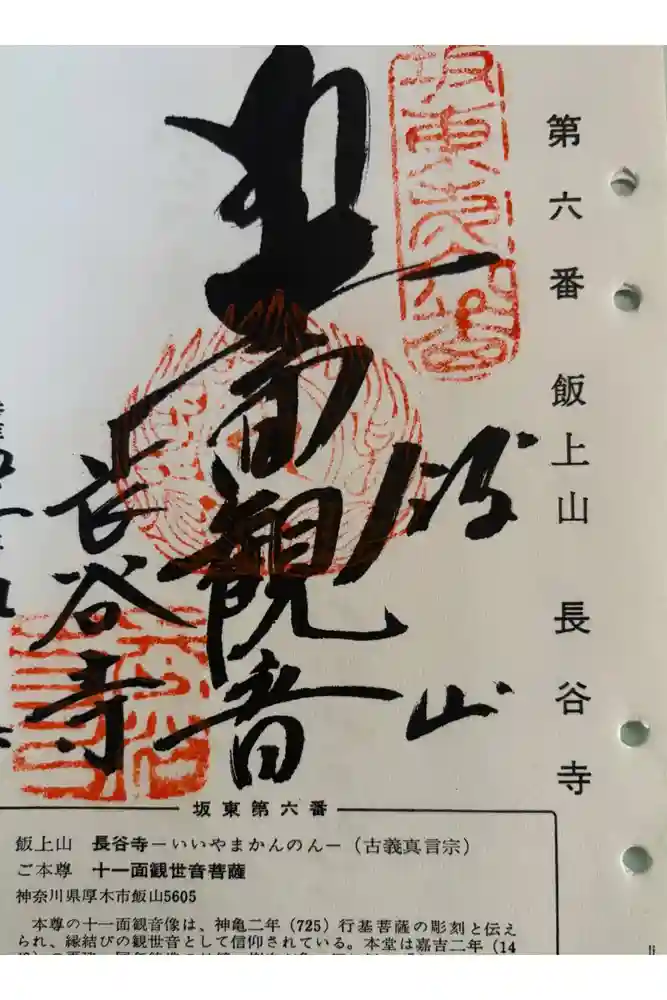 第六番 飯上山 長谷寺
坂東六番
飯山
十一面観音
長谷寺
坂東第六番
飯上山 長谷寺ーいいやまかんのんー(古義真言宗)
ご本尊 十一面観世音菩薩
神奈川県厚木市飯山5605
本尊の十一面観音像は、神亀二年(725)行基菩薩の彫刻と伝え
られ、縁結びの観世音として信仰されている。本堂は嘉吉二年(14